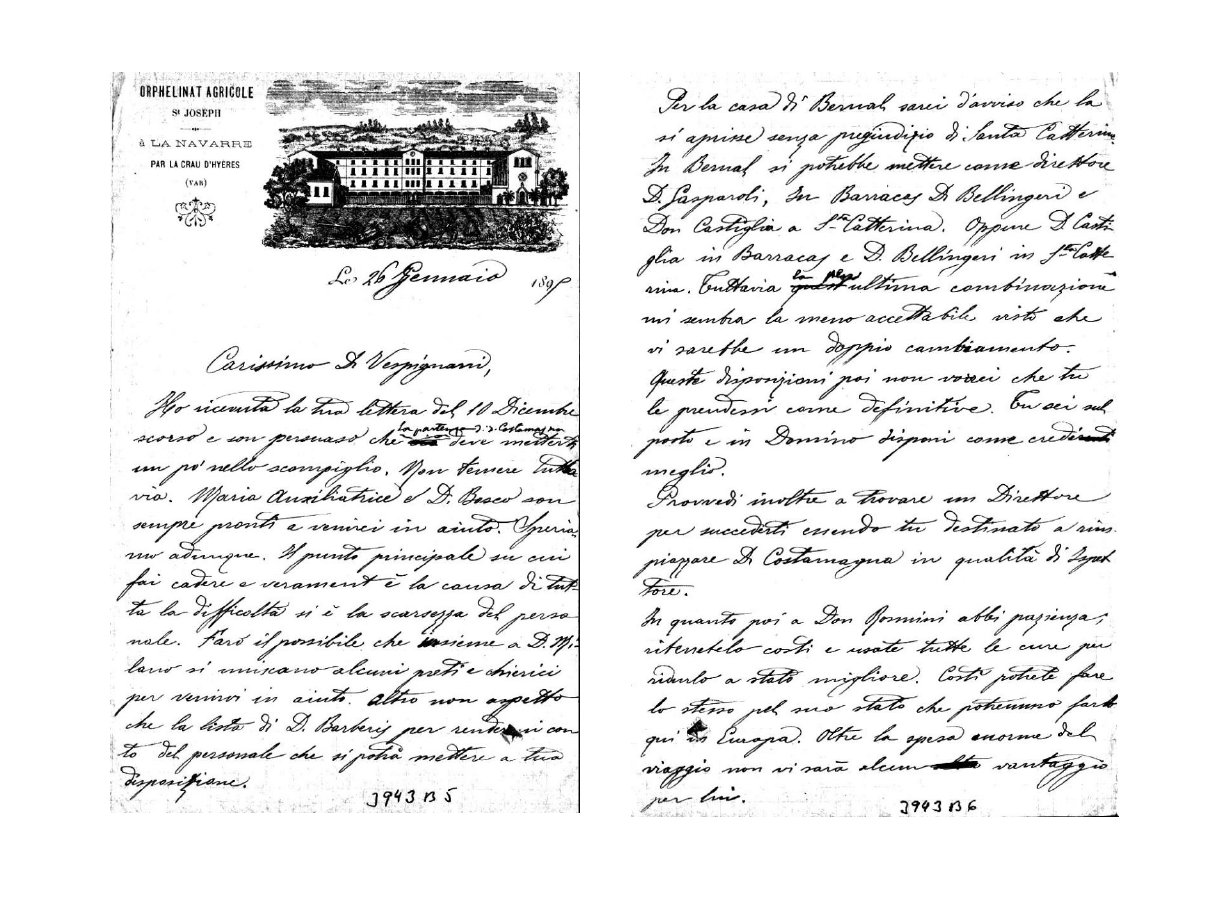 ORPHELINAT AGRICOLE
St JOSEPH
à LA NAVARRE
PAR LA CRAU D'HYÈRES
(VAR)
Le 26 Gennaio 1895
Carissimo D. Vespignani,
Ho ricevuta la tua lettera del 10 Dicembre
scorso e son persuaso che la partenza di D. Costamagna deve metterti
un po' nello scompiglio. Non temere tutta
via. Maria Auxiliatrice e D. Bosco son
sempre pronti a venirci in aiuto. Speria
mo adunque. Il punto principale su cui
fai cadere e verament è la causa di tut-
ta la difficoltà si è la scarsezza del perso
nale. Farò il possibile che insieme a D. Mi-
lano si uniscano alcuni preti e chierici
per venirvi in aiuto. Altro non aspetto
che la lista di D. Barberis per rendervi con
to del personale che si potrà mettere a tua
disposizione.
3943 B 5
Per la casa di Bernal sarei d'avviso che la
si aprisse senza pregiudizio di Santa Catterina
In Bernal si potrebbe mettere come direttore
D. Gasparoli, In Barracas D. Bellingeri e
Don Castiglia a Sta Catterina. Oppure D. Casti-
glia in Barracas e D. Bellingeri in Sta Catte-
rina. Tuttavia ultima combinazione
mi sembra la meno accettabile visto che
vi sarebbe un doppio cambiamento.
Queste disposizioni poi non vorrei che tu
le prendessi come definitive. Tu sei sul
posto e in Domino disponi come crederai
meglio.
Provvedi inoltre a trovare un Direttore
per succederti essendo tu destinato a rim
piazzare D. Costamagna in qualità di Ispet
tore.
In quanto poi a Don Rosmini abbi pazienza;
ritenetelo costì e usate tutte le cure per
ridurlo a stato migliore. Costì potrete fare
lo stesso pel suo stato che potremmo farlo
qui in Europa. Oltre la spesa enorme del
viaggio non vi sarà alcun vantaggio
per lui.
3943 B 6